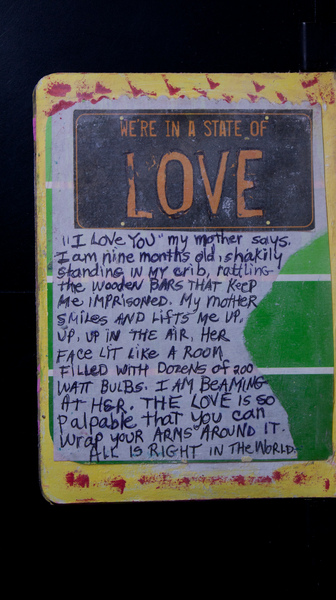 WE'RE IN A STATE OF
LOVE
"I LOVE YOU" my mother says.
I am nine months old, shakily
standing IN MY crib, rattling
the wooden BARS THAT KEEP
Me IMPRISONED. My mother
SMILES AND LIFTS Me UP,
UP, UP IN THE AIR, HER
FACE LIT LIKE A ROOM
FILLED WITH DOZENS OF 200
WATT BULBS. I AM BEAMING
AT HER. THE LOVE IS SO
Palpable that you can
Wrap YOUR ARMS AROUND IT.
ALL IS RIGHT IN THE WORLD.